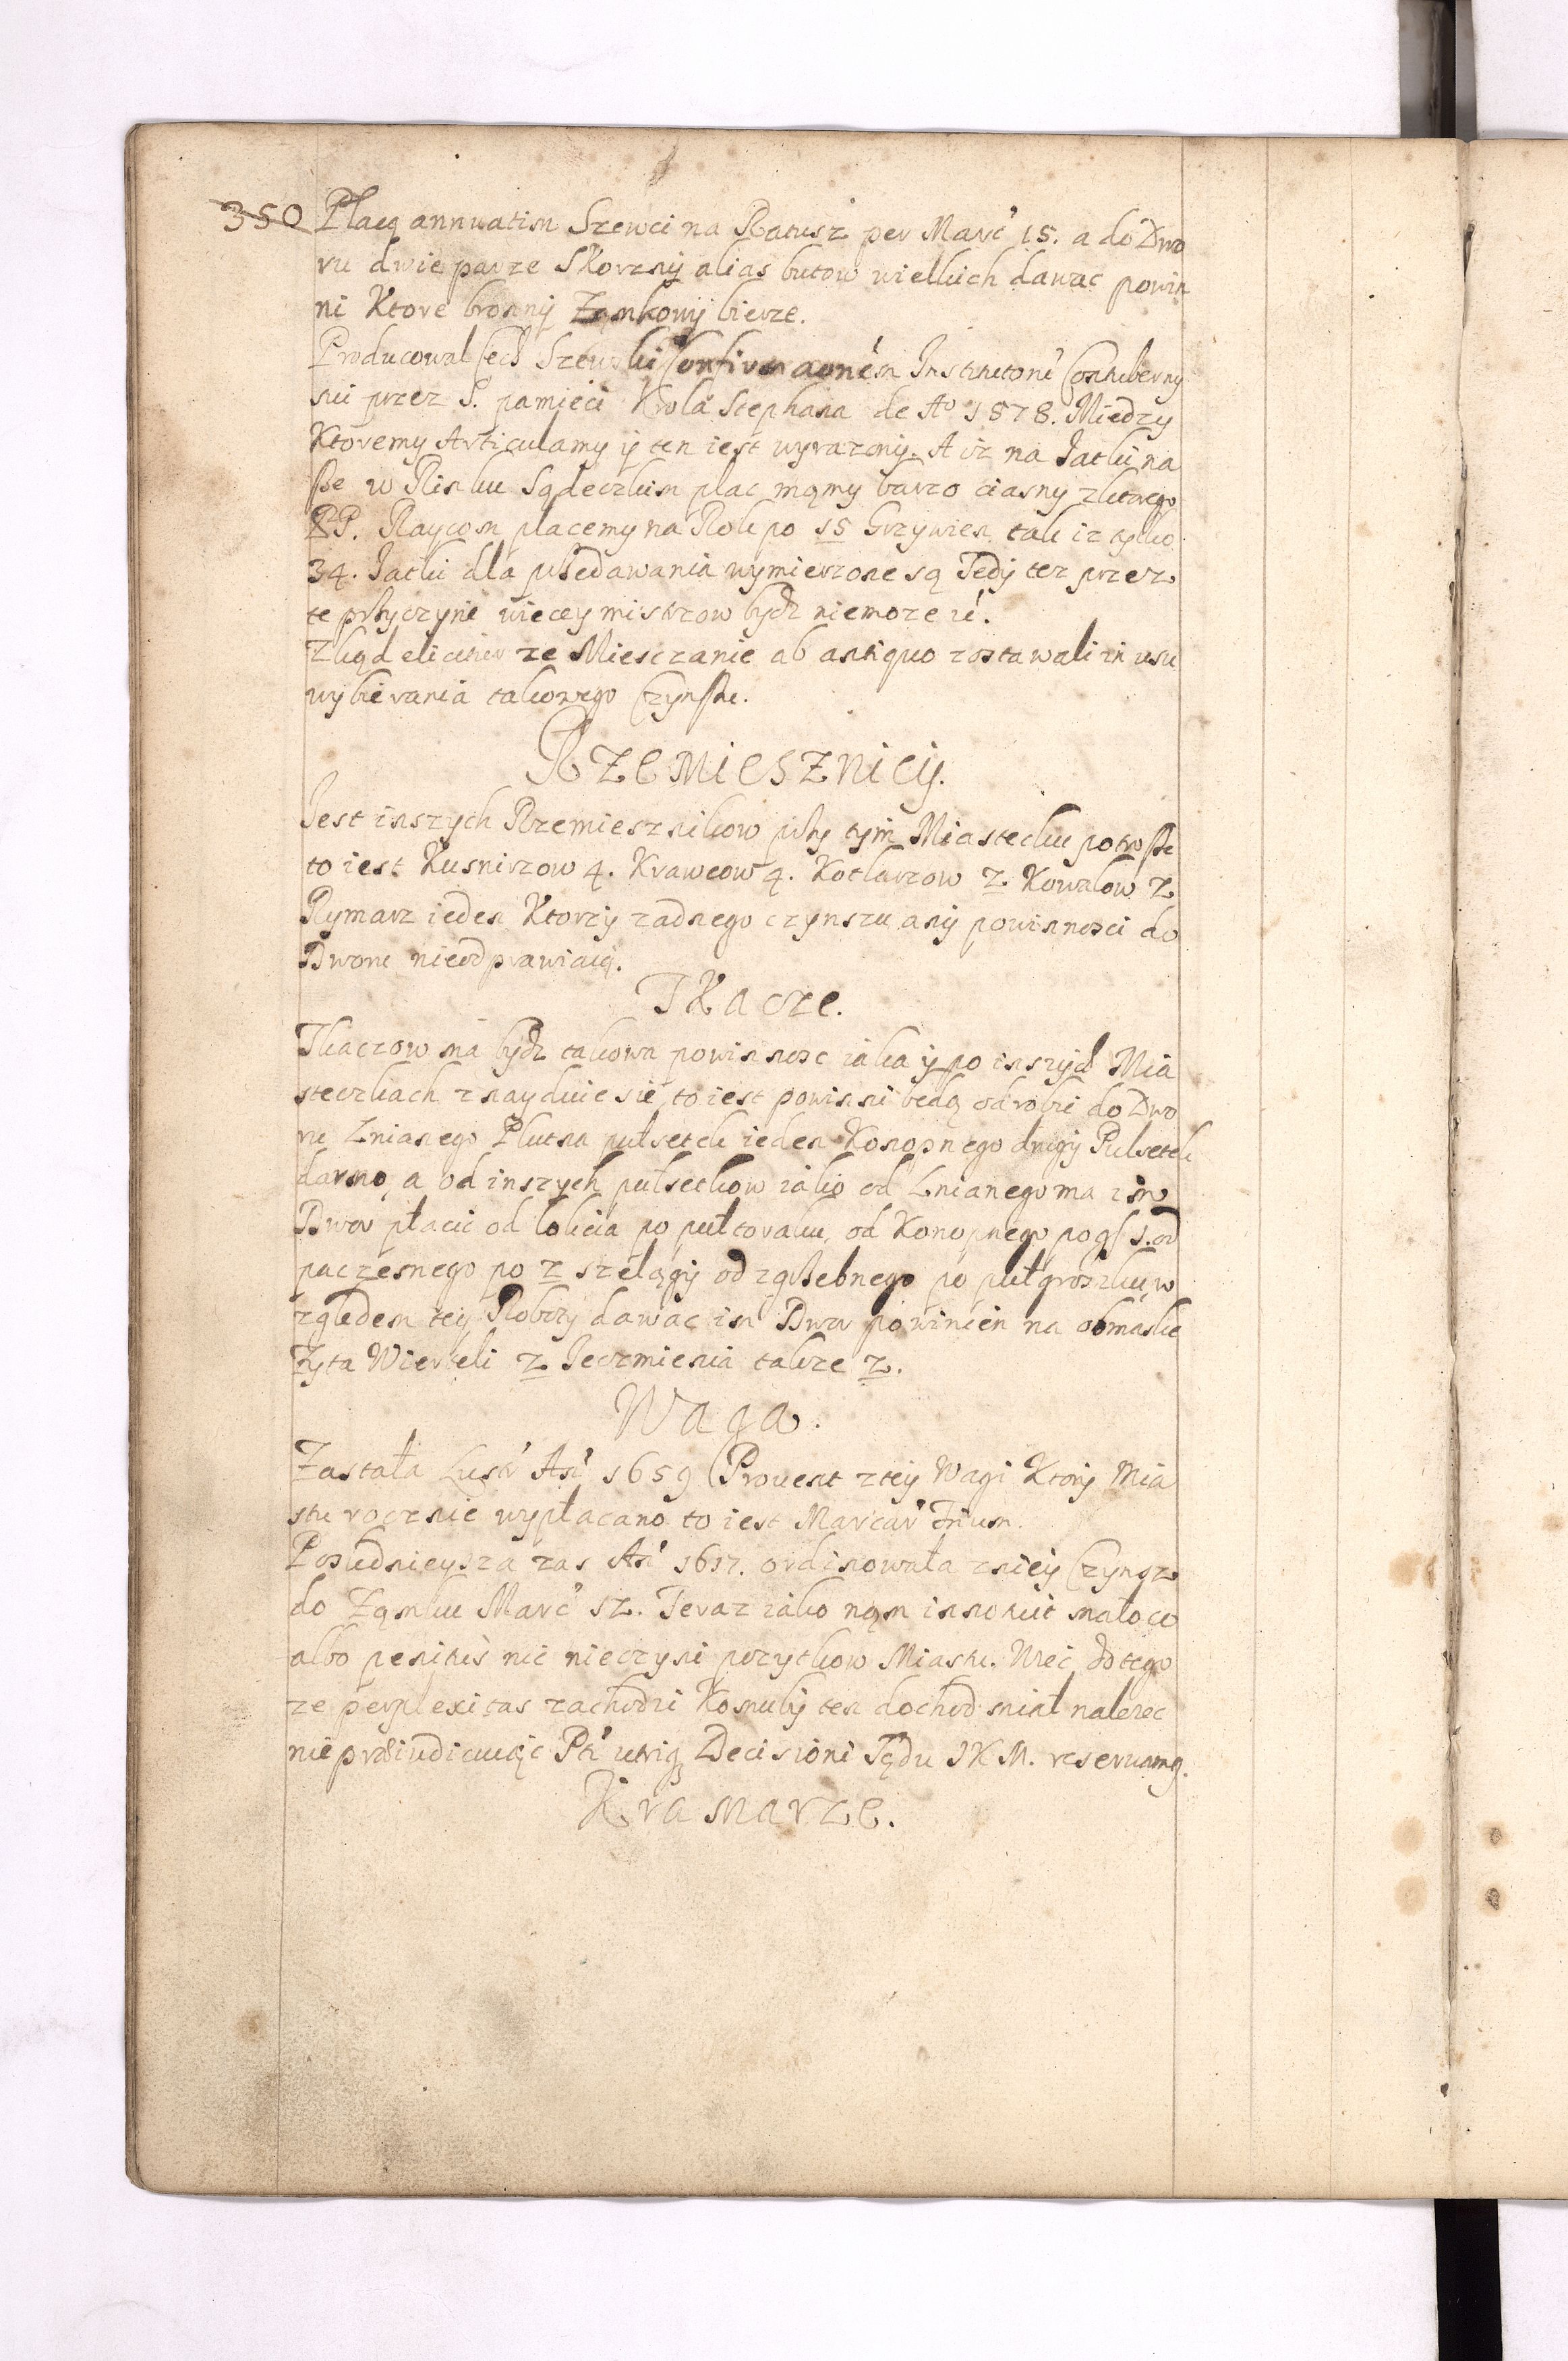 350 Płacą annuatim Szewci na Ratusz per Marc' 15. a do Dwo
ru dwie parze Skorzny alias butow wielkich dawac powin
ni Ktore bronny Zamkowy bierze.
Producował Cech Szewski Confirmaoném Institutoni' Contuberny
sui przez S. pamieci Krola Stephana de Ao 1578. Miedzy
Ktoremy Articulamy ij ten iest wyrazony. A iż na Iatki na
sze w Rinku Sądeczkim plac mąmy barzo ciasny z ktorego
PP. Raycom płacemy na Rok po 15 Grzywien tak iz tylko
34. Iatki dla przedawania wymierzone są Tedy tez przez
te przyczyne wiecey mistrzow bydz niemoze ié.
Zkąd elicitur ze Miesczanie ab antiquo zostawali in usu
wybierania takowego Czynszu.
Rzemiesznicy.
Iest inszych Rzemiesznikow przy tym Miasteczku potrosze
to iest Kusnirzow 4. Krawcow 4. Kotlarzow 2 Kowalow 2
Rymarz ieden Ktorzy zadnego czynszu any powinnosci do
Dworu nieodprawiaią.
Tkacze.
Tkaczow ma bydz takowa powinnosc iaka y po inszych Mia
steczkach znayduie sie, to iest powinni będą odrobic do Dwo
ru Lnianego Plutna pułsetek ieden Konopnego drugi Pulsetek
darmo, a od inszych pułsetkow iako od Lnianego ma im
Dwor płacic od łokcia po pułtoraku, od Konopnego po gl 1. od
paczesnego po 2 szelągy od zgrzebnego po pułgroszku, w
zgledem tey Roboty dawac im Dwor powinien na obmaske
Zyta Wierteli 2 Ieczmienia takze 2.
Waga.
Zastała Lustr' An' 1659 Prouent ztey Wagi Ktory Mia
stu rocznie wypłacano to iest Marcar' Trium.
Poslednieysza zas An' 1617. ordinowała zniey Czynsz
do Zamku Marc' 12. Teraz iako nąm innotuit mało co
albo penitus nic nieczyni pozytkow Miastu. Wiec do tego
ze perplexitas zachodzi Komuby ten dochod miał nalezec
nie praeiudicuiąc Pti' utriq Decisioni Sądu JKM. reseruamq.
Kramarze.